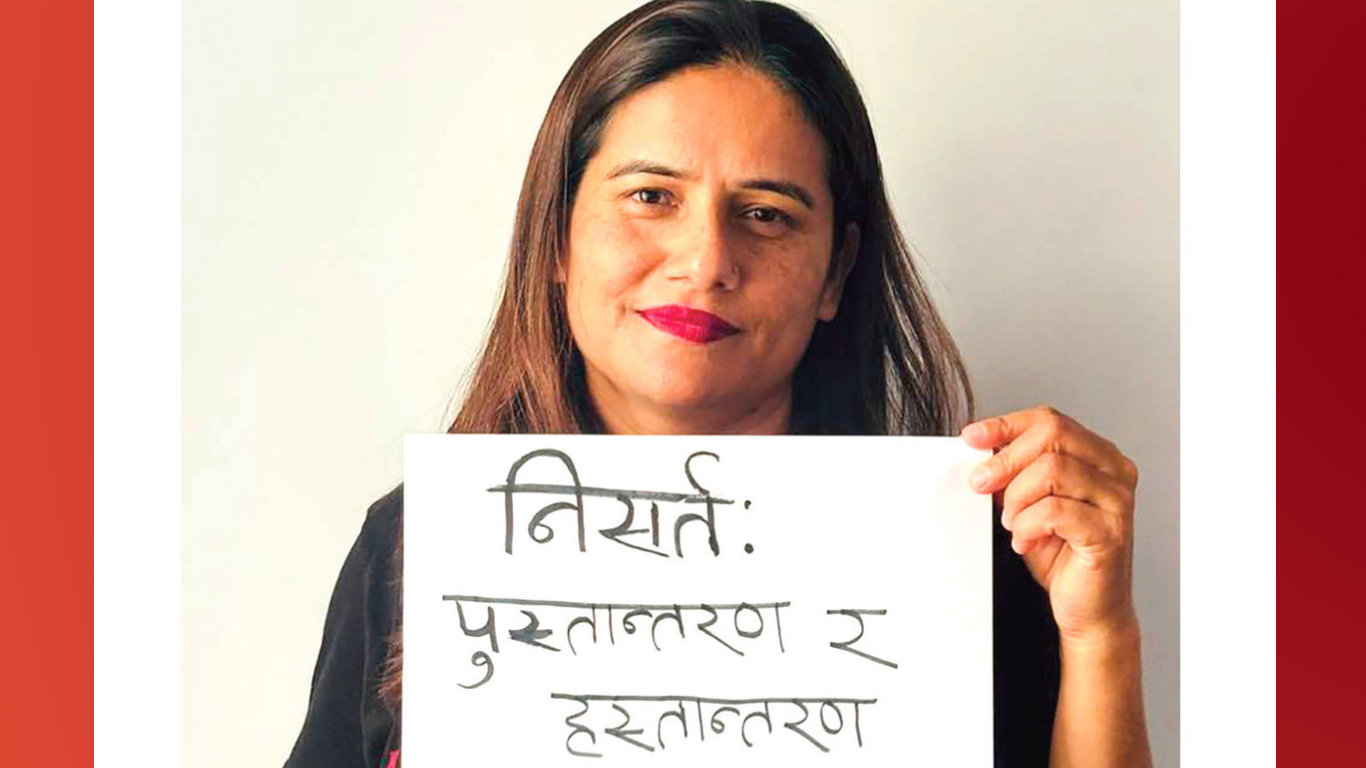 निसर्त:
पुस्तान्तरण र
हस्तान्तरण